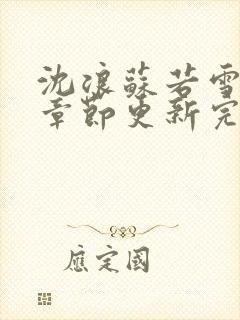 沈浪蘇若雪
章節更新完
應定國